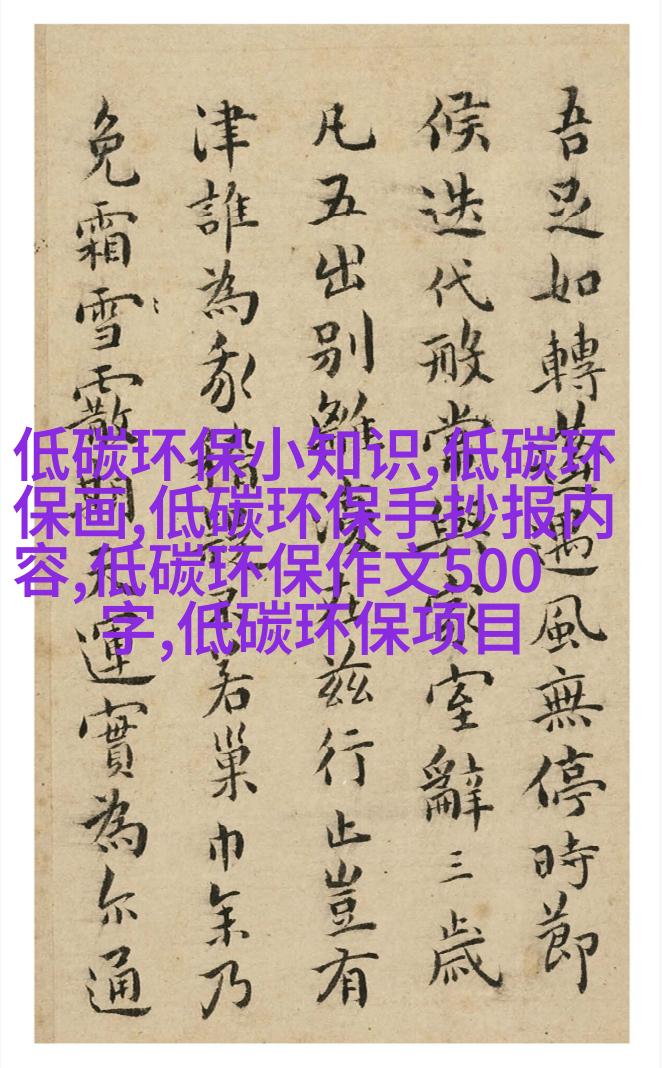 低碳环保小知识,低碳环
保画,低碳环保手抄报内
容,低碳环保作文500
字,低碳环保项目
吾足如轉蓬遇風無停時節
候迭代常與家室辭三歲
凡五出別離復在茲行止豈有
津誰為若巢巾乃
免霜雪霰運實為尔通